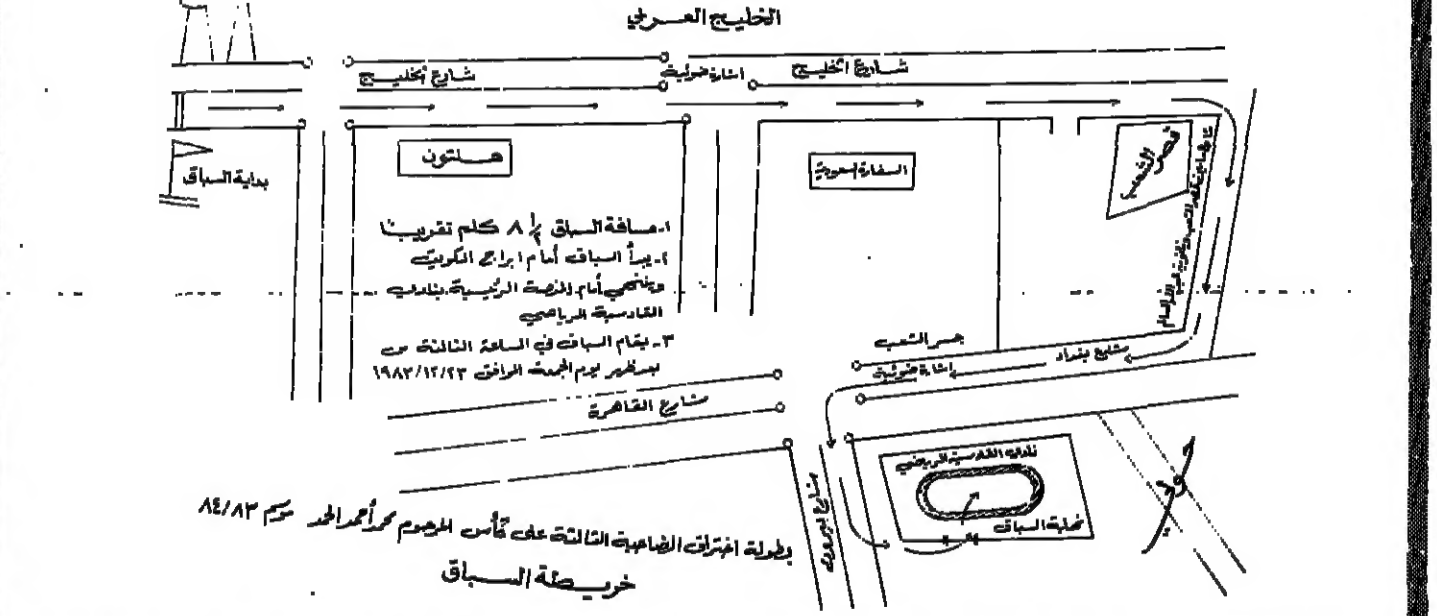 الخليج العربي
شارع الخليج
اشارة ضوئية
شارع الخليج
قصر الشعب
هلتون
السفارة السعودية
بداية السباق
١- مسافة السباق ٨ ١/٢ كلم تقريبًا
٢- يبدأ السباق أمام ابراج الكويت
وينتهي أمام المنصة الرئيسية بنادي
القادسية الرياضي
٣- يقام السباق في الساعة الثالثة من
بعد ظهر يوم الجمعة الموافق ١٩٨٣/١٢/٢٣
جسر الشعب
شارع بغداد
اشارة ضوئية
شارع القاهرة
نادي القادسية الرياضي
نهاية السباق
شارع بيروت
بطولة اختراق الضاحية الثالثة على كأس المرحوم محمد أحمد الحمد موسم ٨٤/٨٣
خريطة السباق